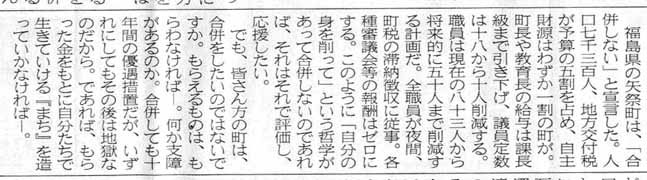 福島県の矢祭町は、「合
併しない」と宣言した。人
口七千三百人、地方交付税
が予算の五割を占め、自主
財源はわずか一割の町が。
町長や教育長の給与は課長
級まで引き下げ、議員定数
は十八から十人削減する。
職員は現在の八十三人から
将来的に五十人まで削減す
る計画だ。全職員が夜間、
町税の滞納徴収に従事。各
種審議会等の報酬はゼロに
する。このように「自分の
身を削って」という哲学が
あって合併しないのであれ
ば、それはそれで評価し、
応援したい。
でも、皆さん方の町は、
合併をしたいのではないで
すか。もらえるものは、も
らわなければ―。何か支障
があるのか。合併しても十
年間の優遇措置だが、いず
れにしてもその後は地獄な
のだから。であれば、もら
った金をもとに自分たちで
生きていける『まち』を造
っていかなければ―。